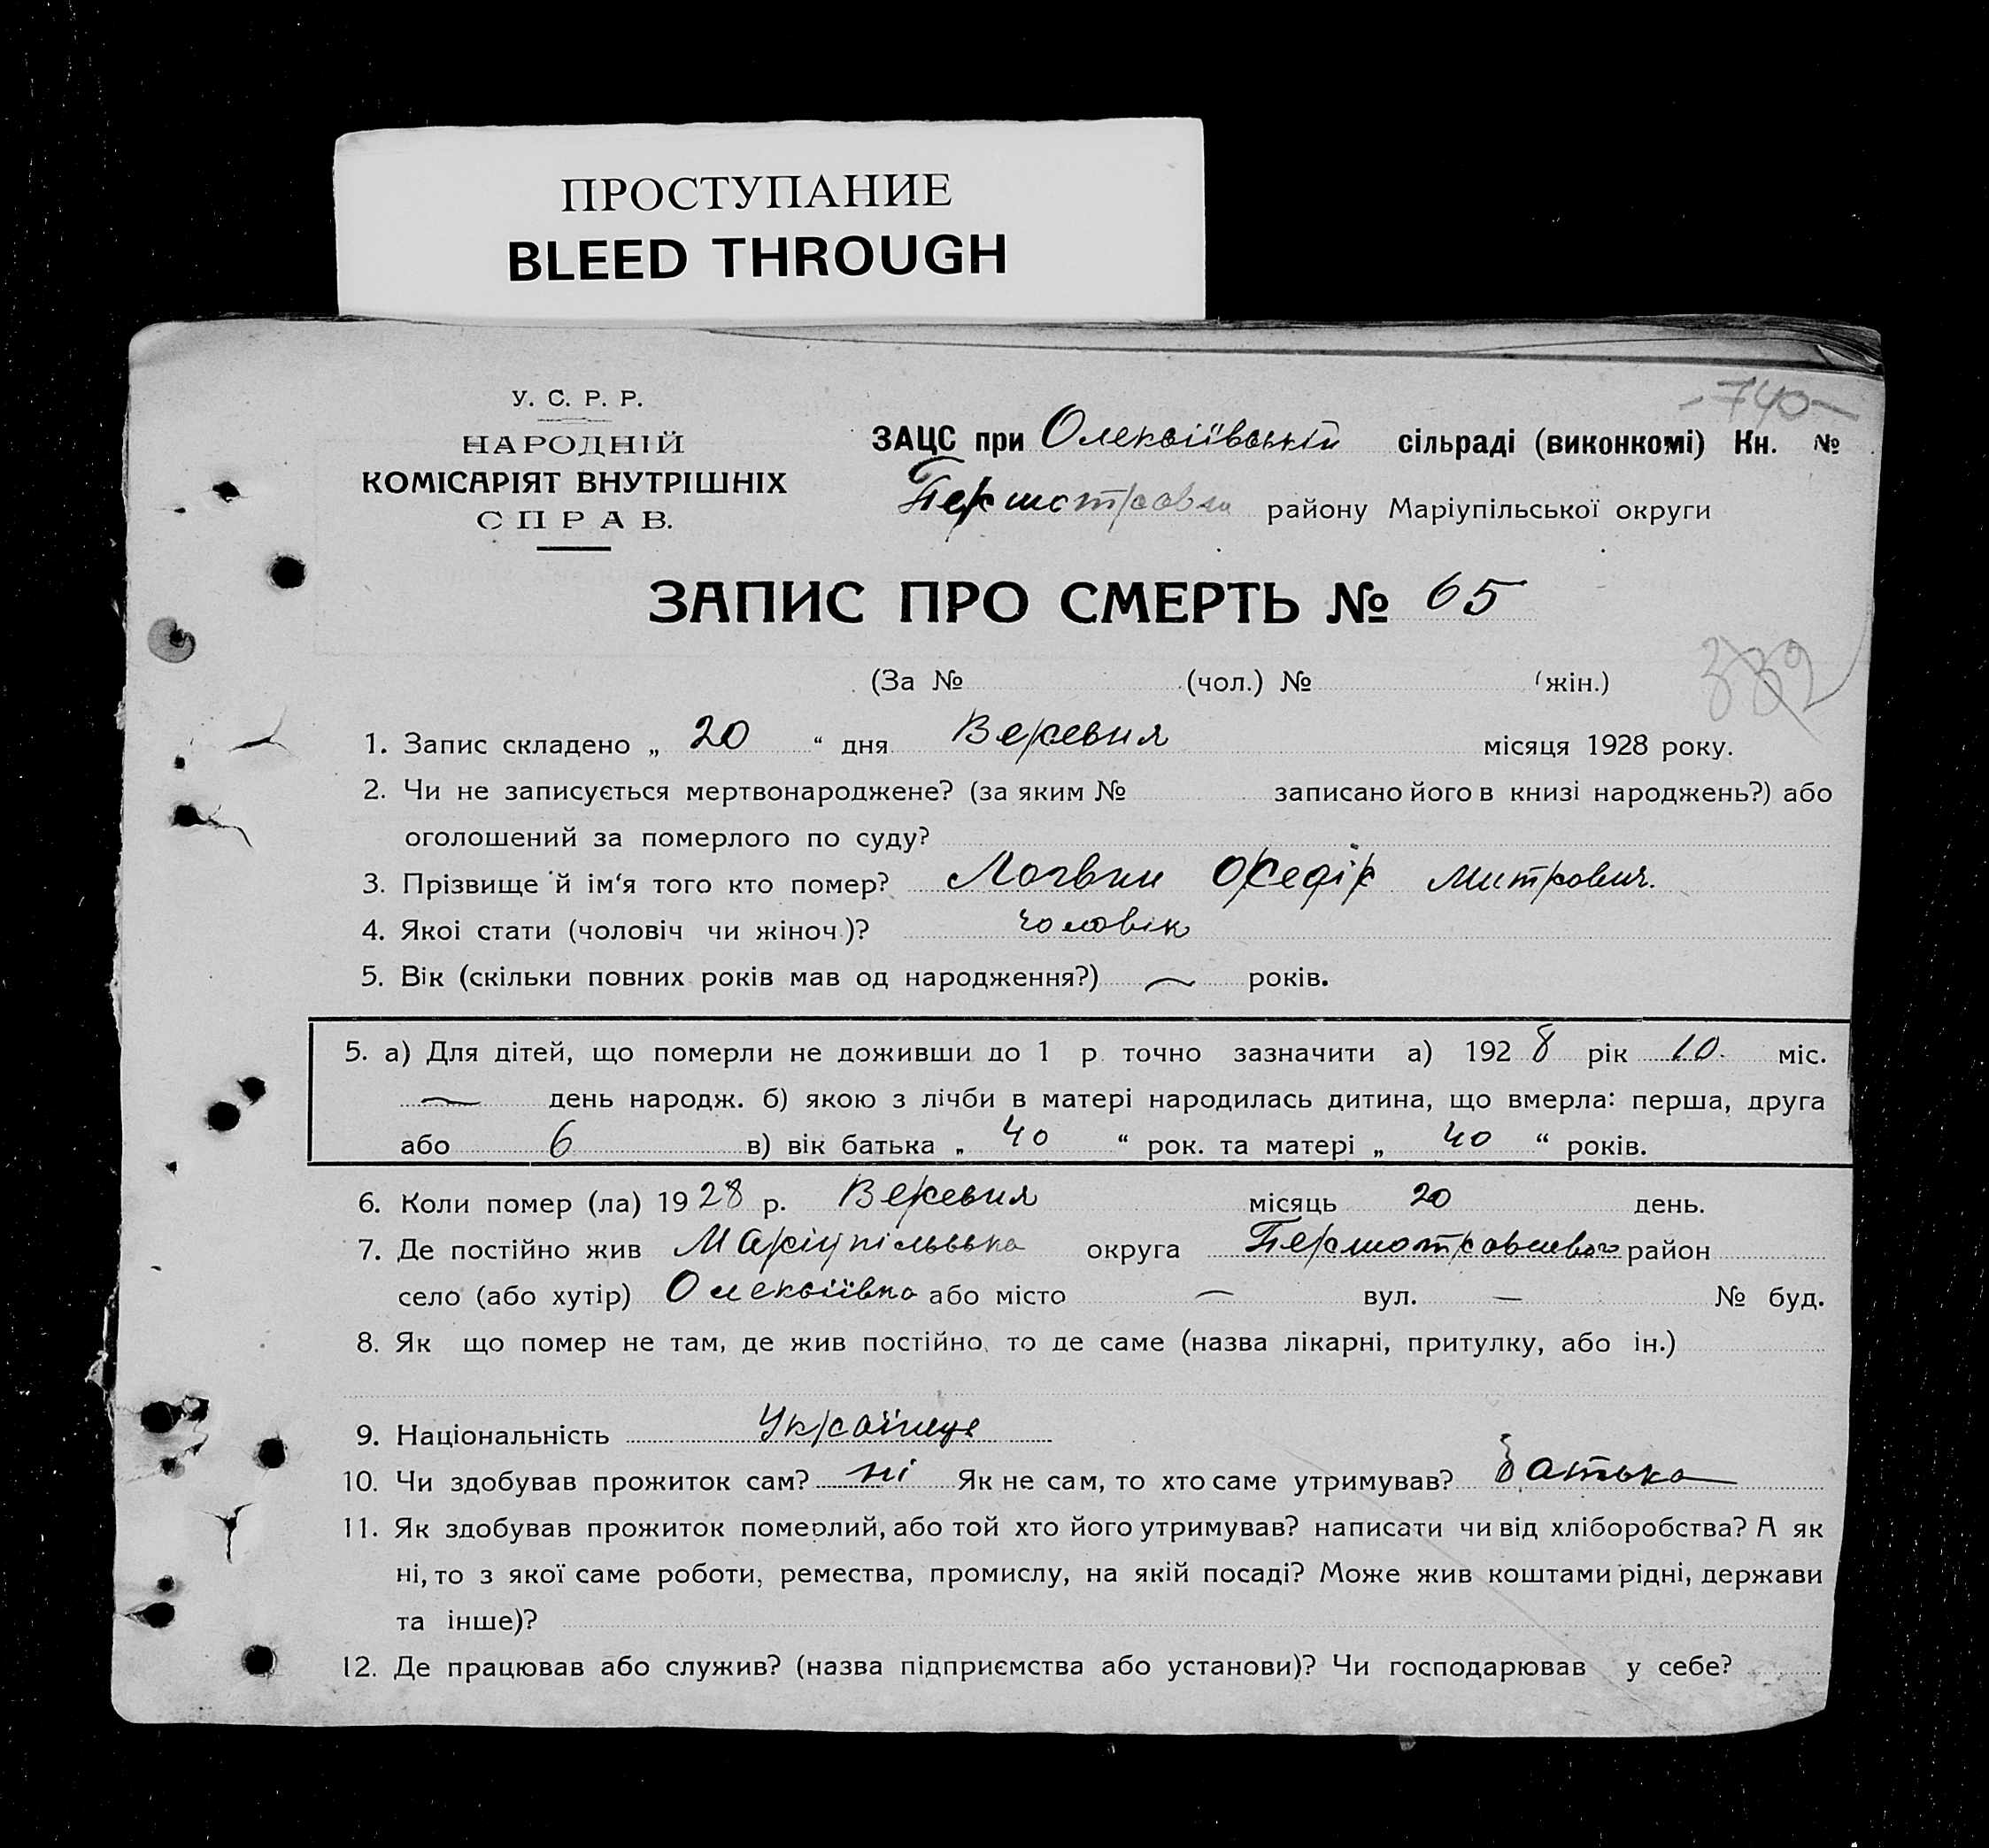 ПРОСТУПАНИЕ
BLEED THROUGH
-740-
У. С. Р. Р.
НАРОДНІЙ
КОМІСАРІЯТ ВНУТРІШНІХ
СПРАВ.
ЗАЦС при Олексіївській сільраді (виконкомі) Кн. №
району Маріупільської округи
ЗАПИС ПРО СМЕРТЬ № 65
332
(За № (чол.) № (жін.)
1. Запис складено „ 20 “ дня Вересня місяця 1928 року.
2. Чи не записується мертвонароджене? (за яким № записано його в книзі народжень?) або
оголошений за померлого по суду?
3. Прізвище й ім‘я того кто помер? Логвин Федір Митрович.
4. Якої стати (чоловіч чи жіноч.)? чоловік
5. Вік (скільки повних років мав од народження?) — років.
5. а) Для дітей, що померли не доживши до 1 р. точно зазначити а) 1928 рік 10. міс.
— день народж. б) якою з лічби в матері народилась дитина, що вмерла: перша, друга
або 6 в) вік батька „ 40 “ рок. та матері „ 40 “ років.
6. Коли помер (ла) 1928 р. Вересня місяць 20 день.
7. Де постійно жив Маріупільська округа район
село (або хутір) Олексіївка або місто — вул. — № буд.
8. Як що помер не там, де жив постійно, то де саме (назва лікарні, притулку, або ін.)
9. Національність Українце
10. Чи здобував прожиток сам? ні Як не сам, то хто саме утримував? Батько
11. Як здобував прожиток померлий, або той хто його утримував? написати чи від хліборобства? А як
ні, то з якої саме роботи, ремества, промислу, на якій посаді? Може жив коштами рідні, держави
та інше)?
12. Де працював або служив? (назва підприємства або установи)? Чи господарював у себе?